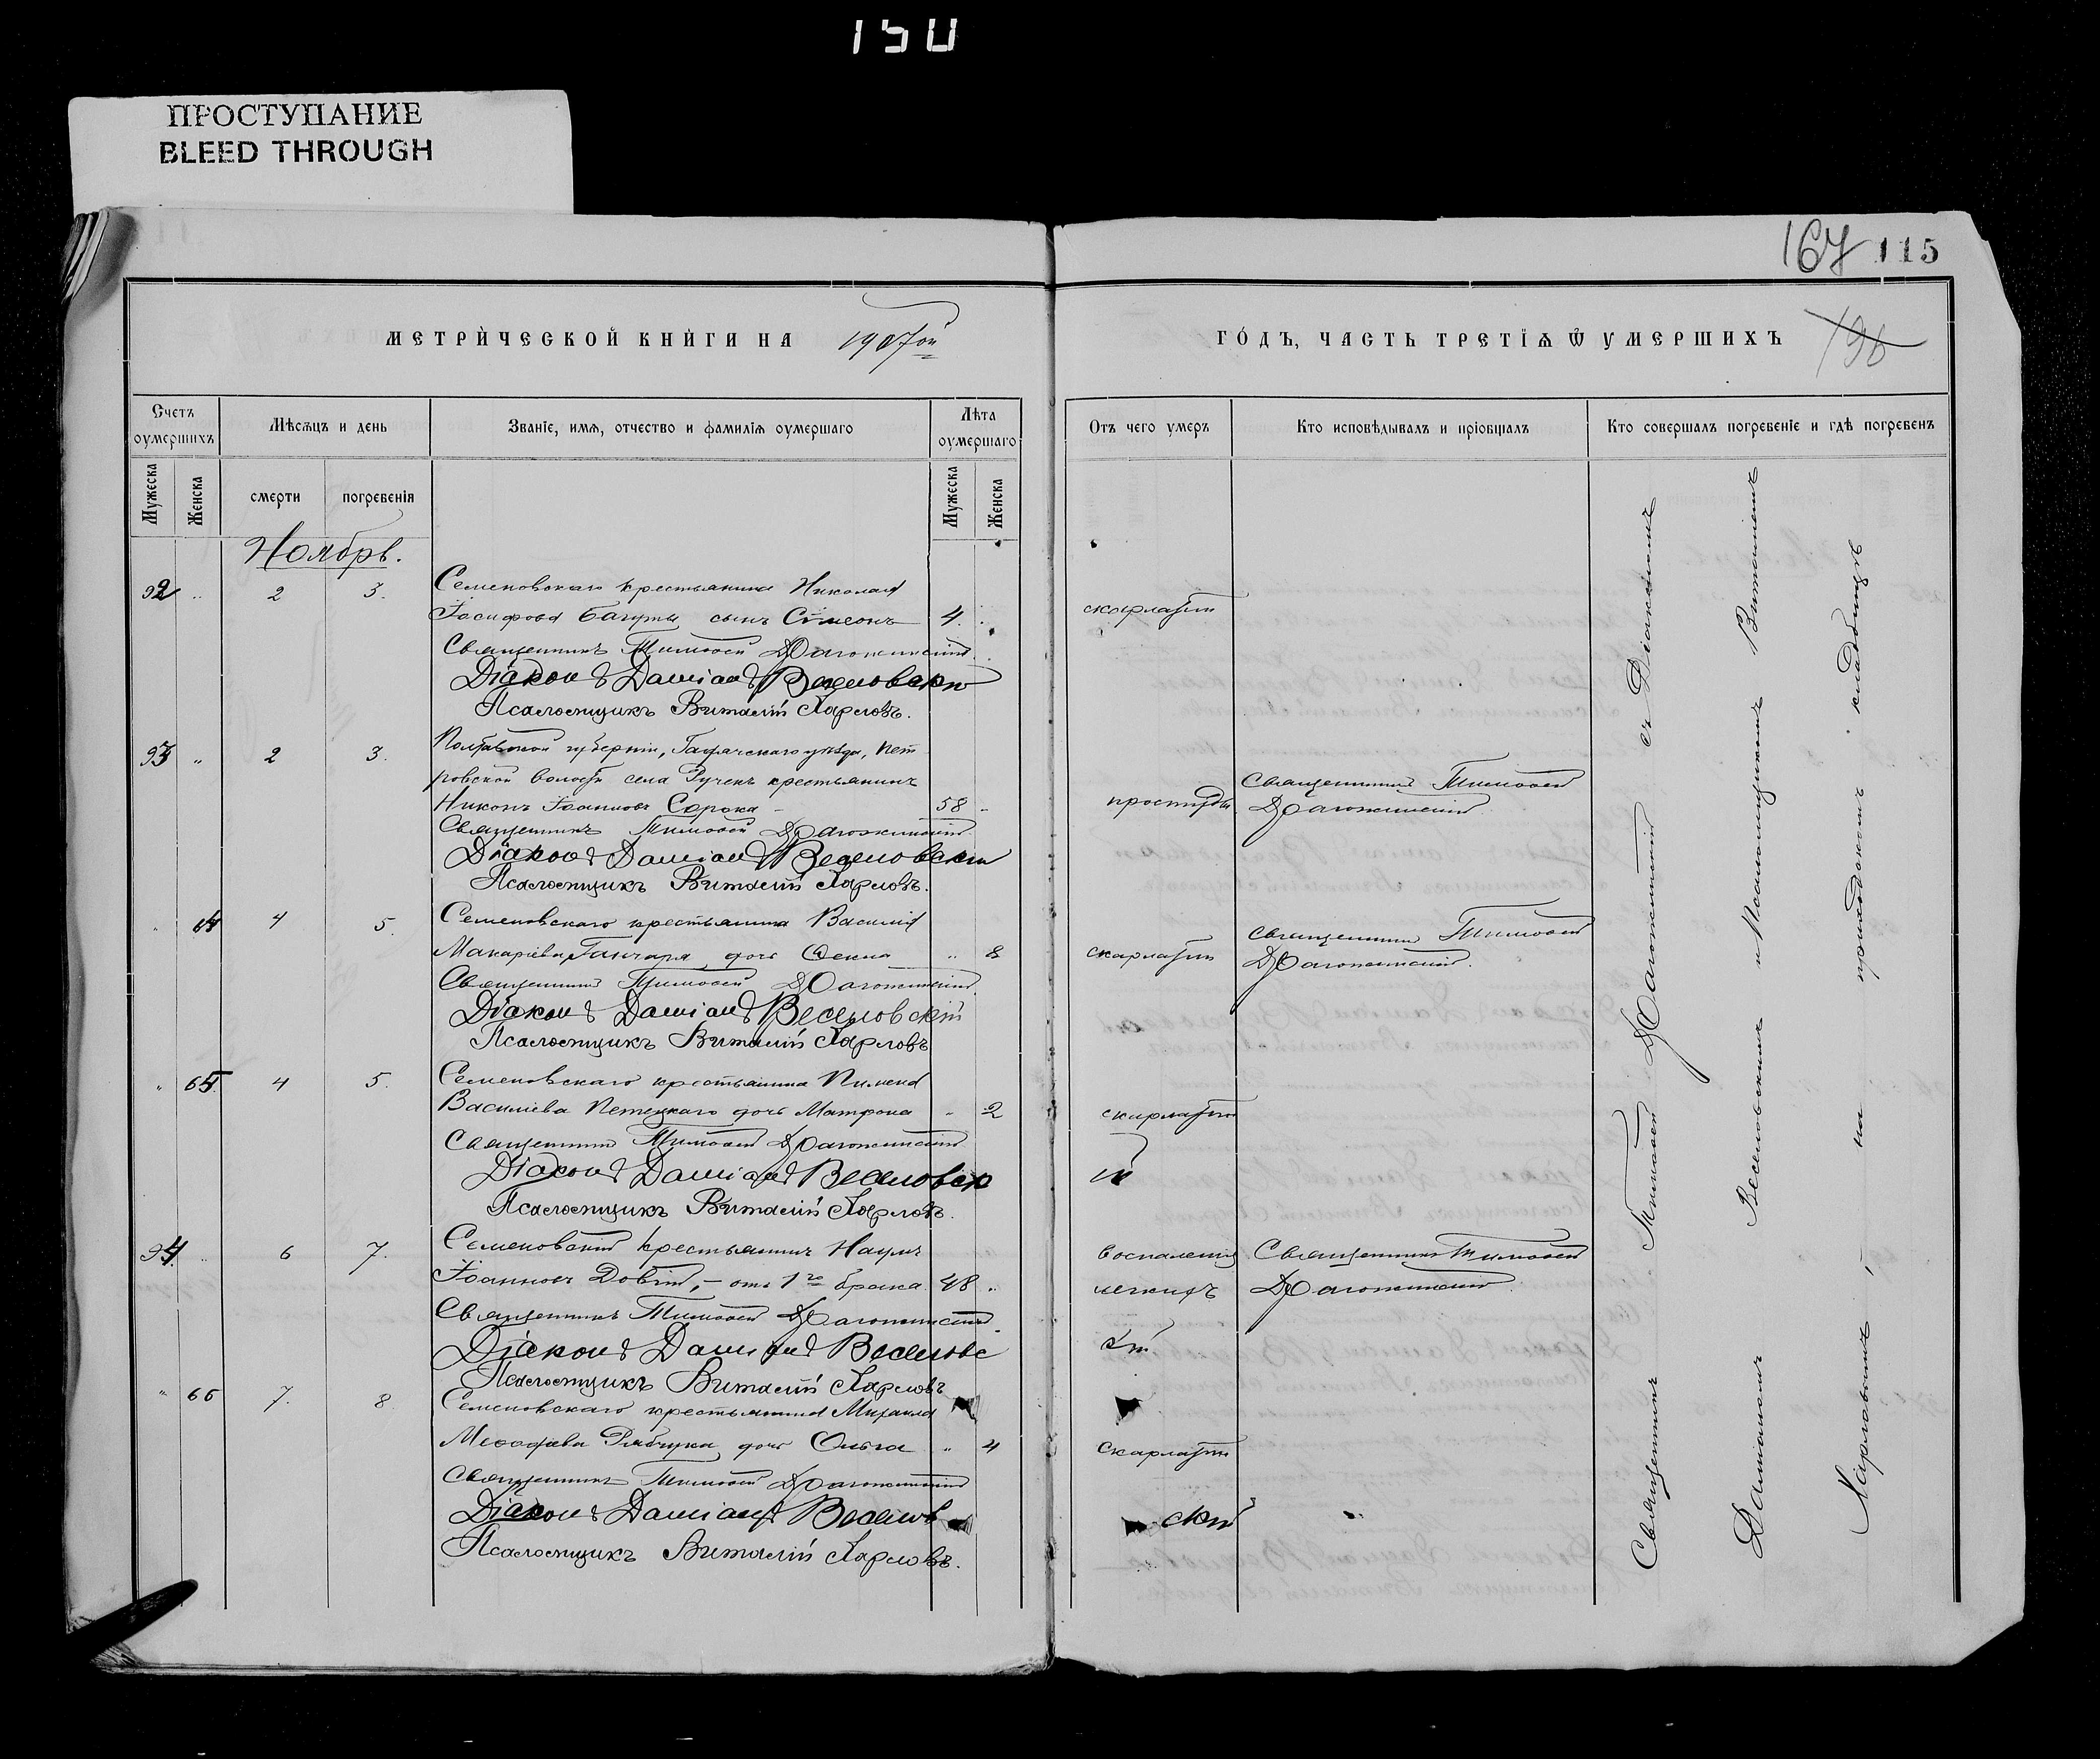 150
ПРОСТУПАНИЕ
BLEED THROUGH
167 115
МЕТРИ́ЧЕСКОЙ КНИ́ГИ НА 1907ой
ГО́ДЪ, ЧАСТЬ ТРЕТІѦ Ѿ УМЕРШИХЪ 196
Счетъ оумершихъ
Мѣсѧцъ и день
Званіе, имѧ, отчество и фамиліѧ оумершаго
Лѣта оумершаго
Отъ чего умеръ
Кто исповѣдывалъ и пріобщалъ
Кто совершалъ погребеніе и гдѣ погребенъ
Мужеска
Женска
смерти
погребенія
Мужеска
Женска
Ноябрь.
92 " 2 3. Семеновскаго крестьянина Николая
Іосифова сынъ Сѵмеонъ 4. скарлатин
Священникъ Тимоѳей Драгожинскій
Діаконъ Даміанъ Веселовскій
Псаломщикъ Виталій Харловъ.
93 " 2 3. Полтавской губерніи, Гадячскаго уѣзда, Пет
ровской волости села Ручекъ крестьянинъ Священникъ Тимоѳей
Никонъ Іоанновъ Сорока 58 простуды Драгожинскій
Священникъ Тимоѳей Драгожинскій
Діаконъ Даміанъ Веселовскій
Псаломщикъ Виталій Харловъ.
" 64 4 5. Семеновскаго крестьянина Василія Священникъ Тимоѳей
Макаріева Гончара дочь Ѳекла " 8 скарлатин Драгожинскій.
Священникъ Тимоѳей Драгожинскій
Діаконъ Даміанъ Веселовскій
Псаломщикъ Виталій Харловъ
" 65 4 5. Семеновскаго крестьянина Пимена
Василіева дочь Матрона " 2 скарлатин
Священникъ Тимоѳей Драгожинскій
Діаконъ Даміанъ Веселовскій
Псаломщикъ Виталій Харловъ.
94. " 6 7. Семеновскій крестьянинъ Наумъ воспаленія Священникъ Тимоѳей
Іоанновъ Довгій, – отъ 1го брака 48 " легкихъ Драгожинскій
Священникъ Тимоѳей Драгожинскій.
Діаконъ Даміанъ Веселовскій
Псаломщикъ Виталій Харловъ
" 66 7. 8. Семеновскаго крестьянина Михаила
Меѳодіева Рябчука дочь Ольга " 4 скарлатин
Священникъ Тимоѳей Драгожинскій
Діаконъ Даміанъ Веселовскій
Псаломщикъ Виталій Харловъ.
Священникъ Тимоѳей Драгожинскій съ Діакономъ
Даміаномъ Веселовскимъ и Псаломщикомъ Виталіемъ
Харловымъ, – на приходскомъ кладбищѣ